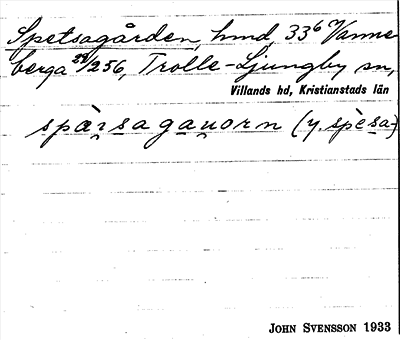 Spetsagården, hmd, 33⁶ Vanne-
berga 28/256, Trolle-Ljungby sn,
Villands hd, Kristianstads län
spàɪsagaɳorn (y. spèsa-)
JOHN SVENSSON 1933